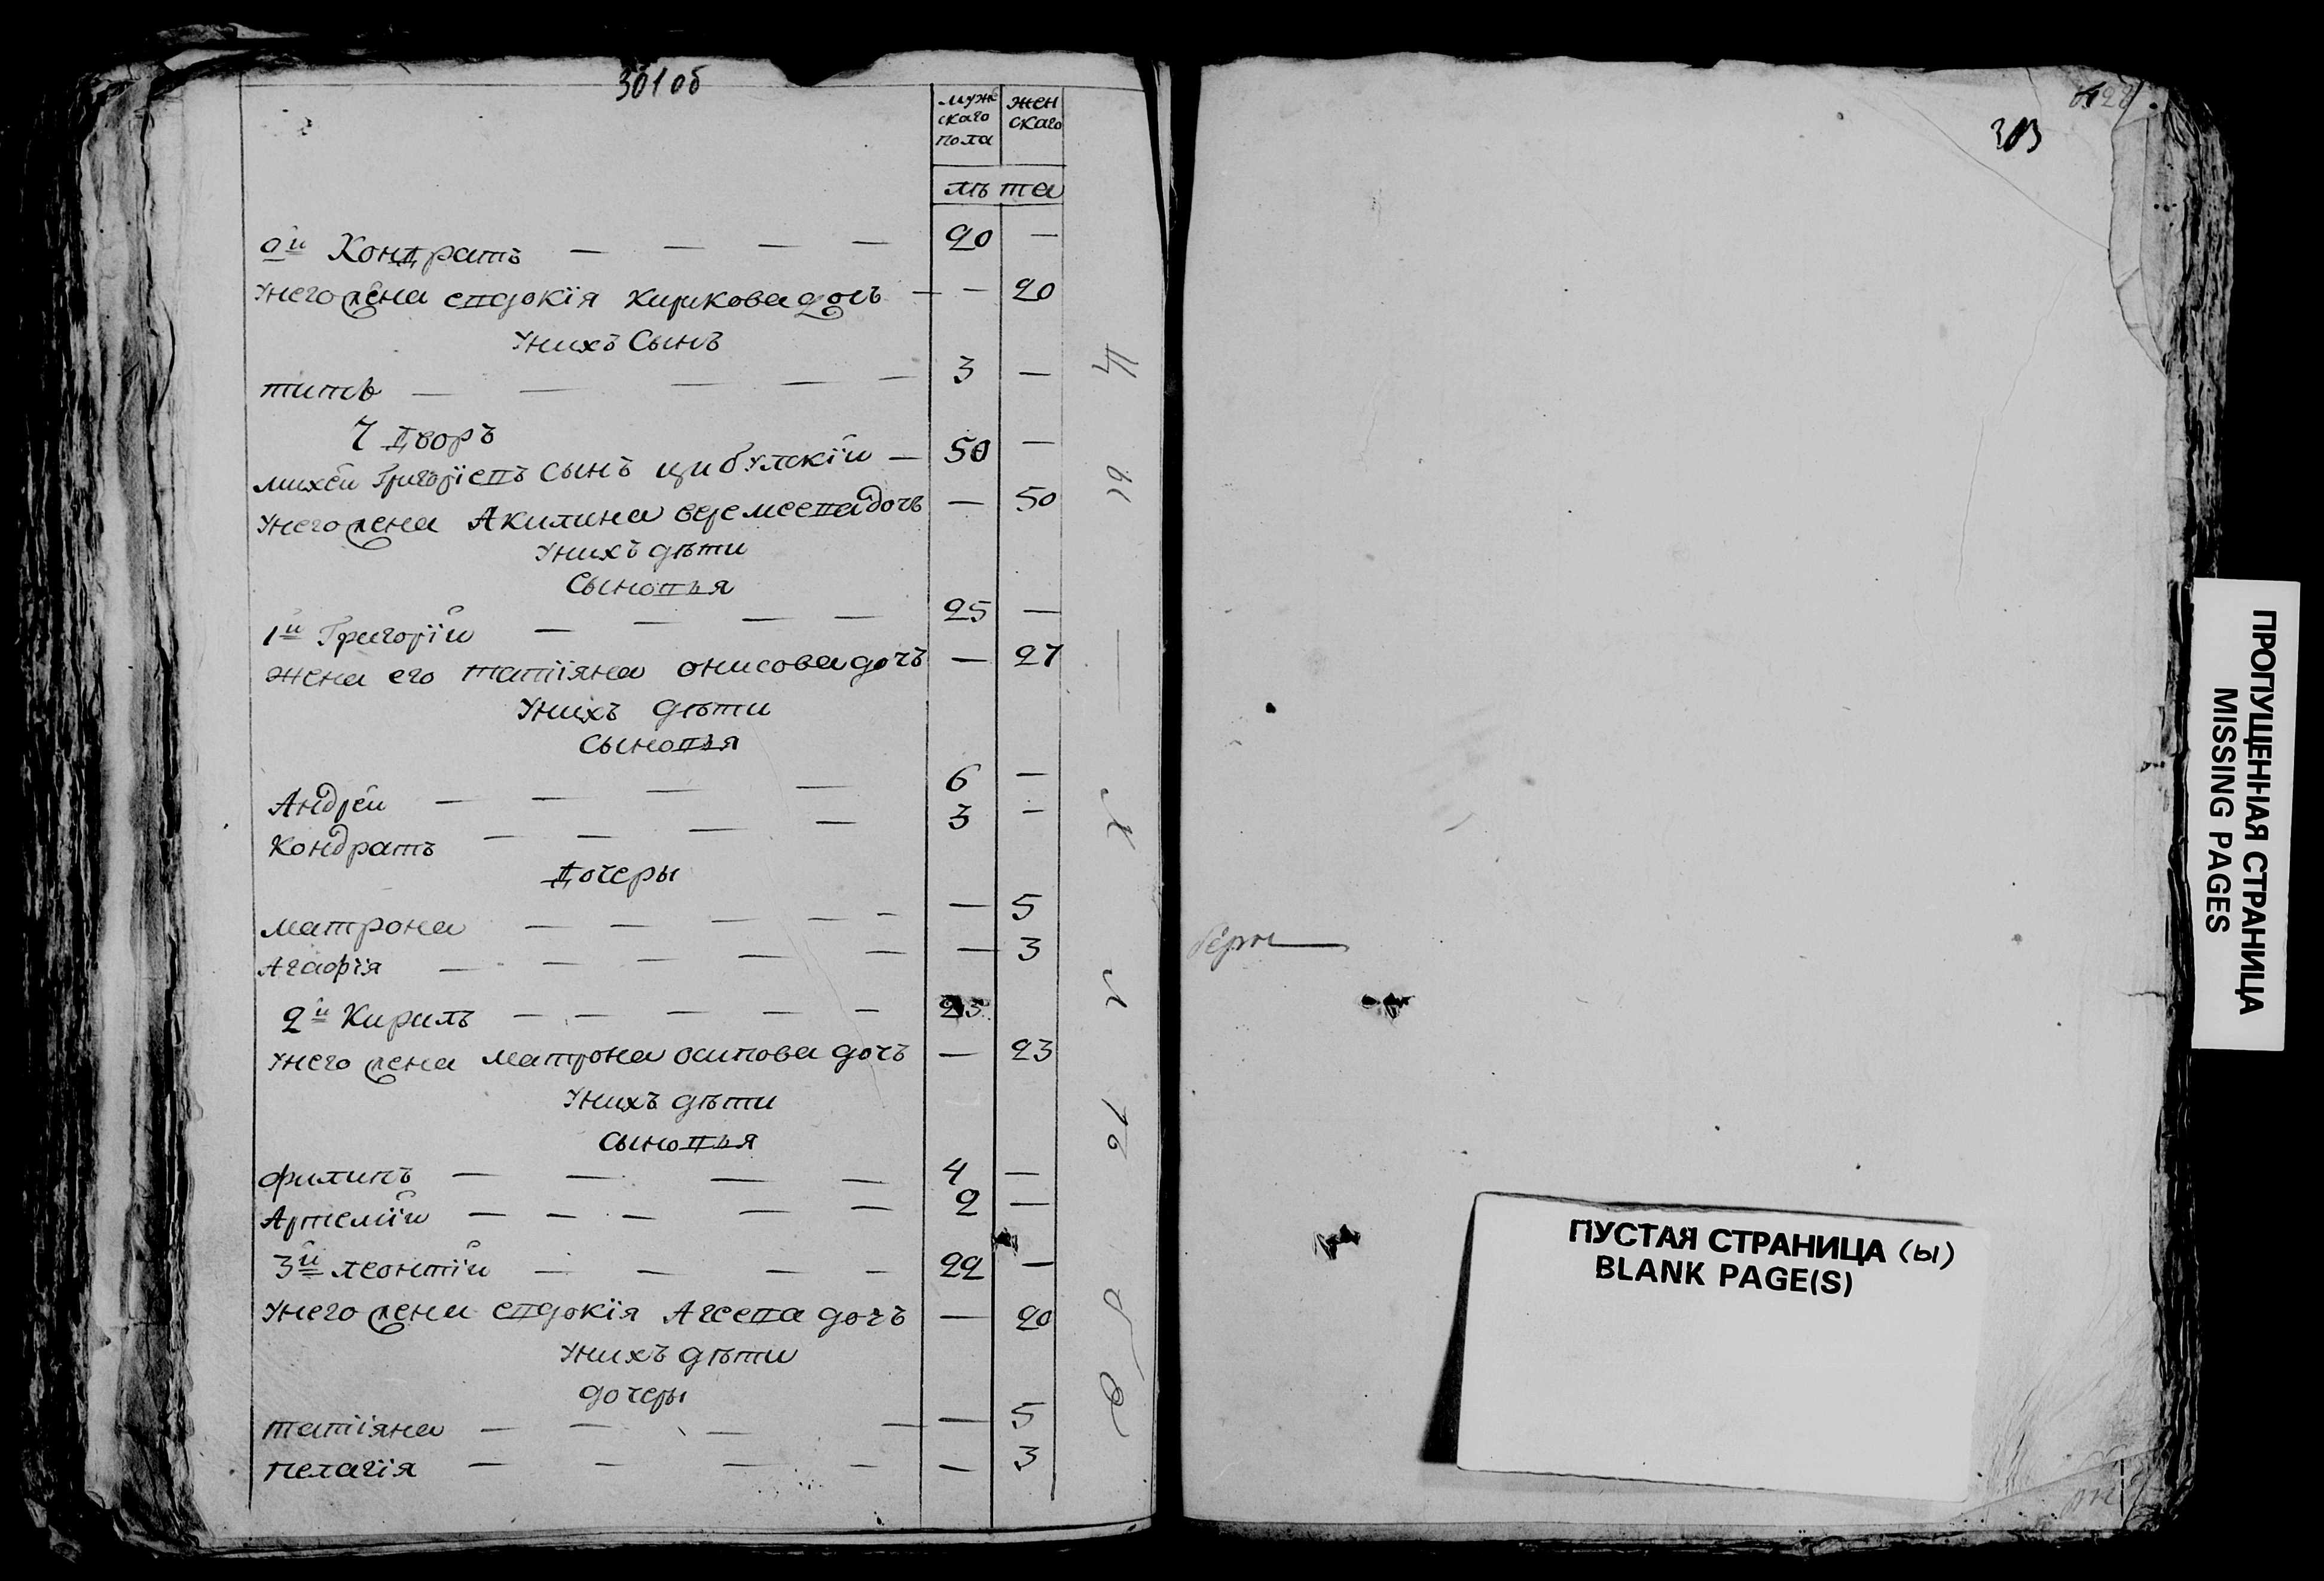 301 об
мужскаго пола
женскаго
лѣта
2й Кондратъ — — — — 20 —
Унего жена Евдокія Хиркова дочь — — 20
Унихъ Сынъ
титъ — — — — — 3 —
7 Дворъ
михей Григоріевъ сынъ цибулскій — 50 —
Унего жена Акилина веремеева дочь — 50
Унихъ дѣти
Сыновья
1й Григорій — — — — 25 —
жена его татіяна онисова дочъ — 27
Унихъ дѣти
Сыновья
Андрей — — — — 6 —
Кондратъ — — — — 3 —
Дочеры
матрона — — — — — — 5
Агафія — — — — — — 3
2й Кирилъ — — — — — 23
Унего жена матрона осипова дочъ — 23
Унихъ дѣти
сыновья
филипъ — — — — 4 —
Артемій — — — — — 2 —
3й леонтій — — — — 22 —
Унего жена евдокія Агеева дочъ — 20
Унихъ дѣти
дочеры
татіяна — — — — — 5
пелагія — — — — — 3
303
ПРОПУЩЕННАЯ СТРАНИЦА
MISSING PAGES
ПУСТАЯ СТРАНИЦА (Ы)
BLANK PAGE(S)